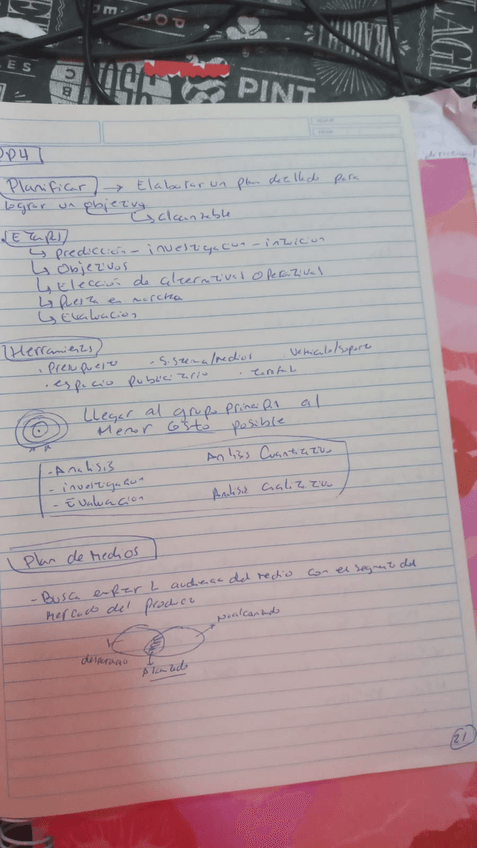 PINT
Planificar → Elaborar un plan detallado para
lograr un objetivo
↳ alcanzable
Etapas
↳ predicción - investigacion - intuicion
↳ Objetivos
↳ Elección de alternativas Operativas
↳ Puesta en marcha
↳ Evaluacion
Herramientas
· Presupuesto · Sistema/medios Vehiculo/Soporte
· espacio publicitario
Llegar al grupo principal al
Menor Costo posible
- Analisis Analisis Cuantitativo
- investigacion
- Evaluacion Analisis Cualitativo
Plan de Medios
- Busca enfrentar audiencia del medio con el segmento del
Mercado del Producto
No alcanzado
Alcanzado
21